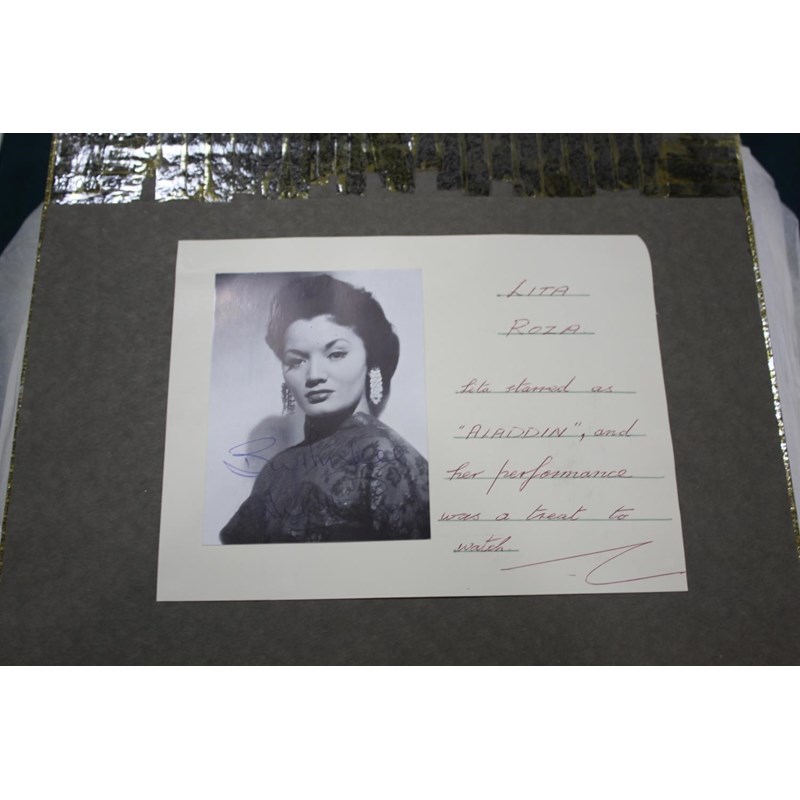 LITA
ROZA
Lita starred as
"ALADDIN", and
her performance
was a treat to
watch.
Best